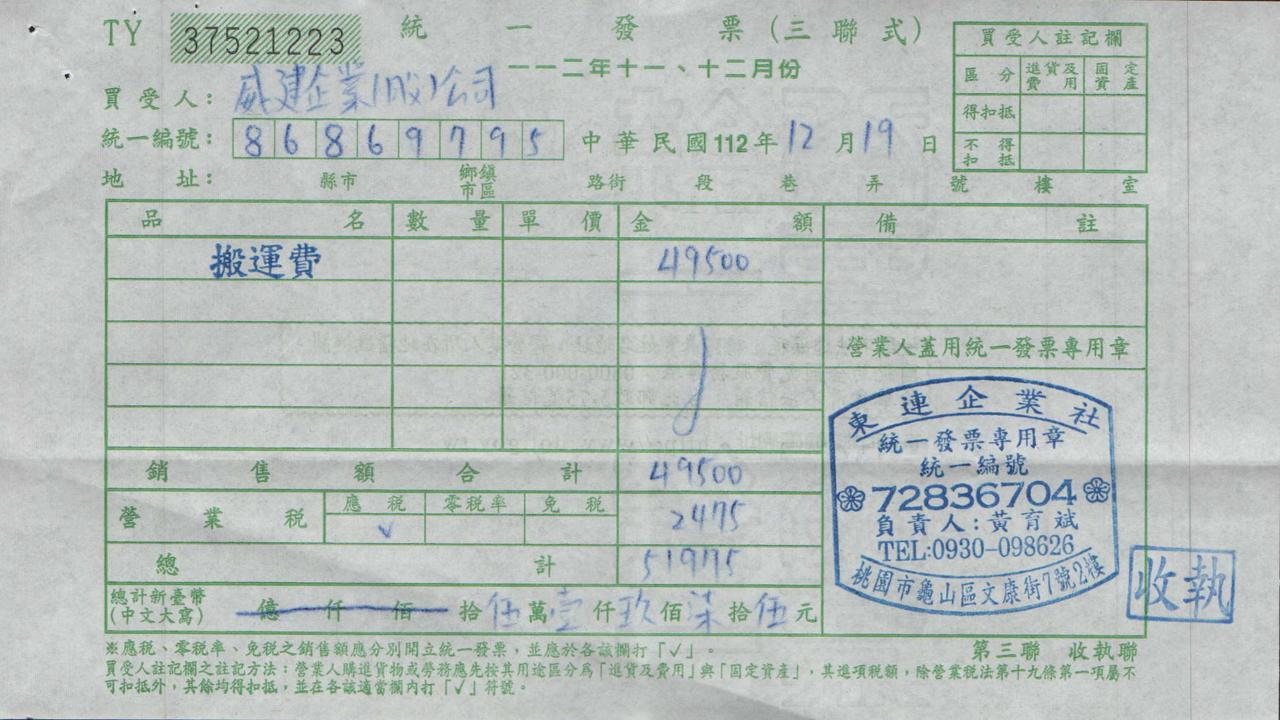 TY 37521223 統一發票(三聯式)
一一二年十一、十二月份
買受人註記欄
區分 進貨及費用 固定資產
得扣抵
不得扣抵
買受人:威建企業(股)公司
統一編號:86869795 中華民國112年12月19日
地址: 縣市 鄉鎮市區 路街 段 巷 弄 號 樓 室
品名 數量 單價 金額 備註
搬運費 49500
營業人蓋用統一發票專用章
銷售額合計 49500
營業稅 應稅 零稅率 免稅 2475
✓
總計 51975
總計新臺幣(中文大寫) 億 仟 佰 拾伍萬壹仟玖佰柒拾伍元
東連企業社
統一發票專用章
統一編號
72836704
負責人:黃育斌
TEL:0930-098626
桃園市龜山區文康街7號2樓
收執
※應稅、零稅率、免稅之銷售額應分別開立統一發票,並應於各該欄打「✓」。
第三聯 收執聯
買受人註記欄之註記方法:營業人購進貨物或勞務應先按其用途區分為「進貨及費用」與「固定資產」,其進項稅額,除營業稅法第十九條第一項屬不
可扣抵外,其餘均得扣抵,並在各該適當欄內打「✓」符號。